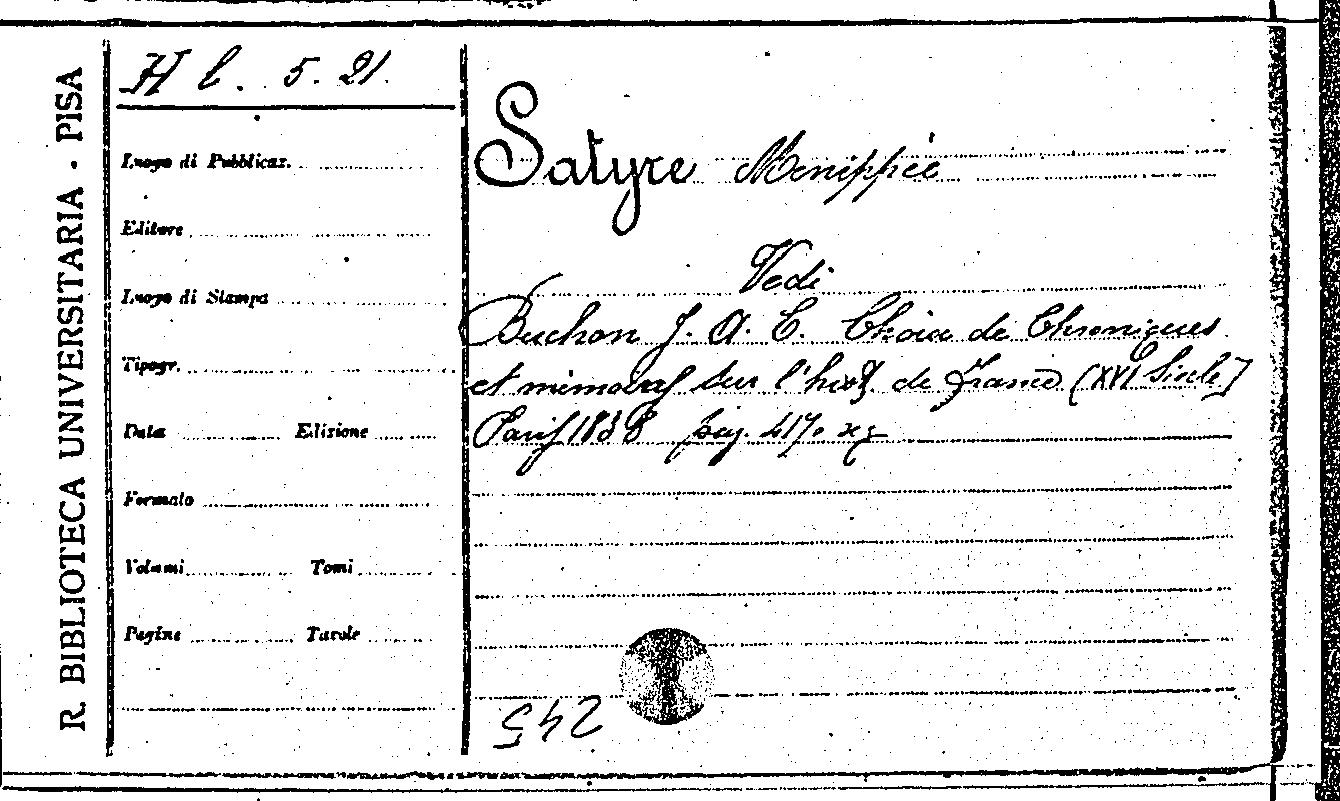 R. BIBLIOTECA UNIVERSITARIA - PISA
H l. 5. 21.
Luogo di Pubblicaz.
Editore
Luogo di Stampa
Tipogr.
Data Edizione
Formato
Volumi Tomi
Pagine Tavole
Satyre Menippée
Vedi
Buchon J. A. C. Choix de Chroniques
et mémoires sur l'hist. de France (XVI Siècle)
Paris 1838 pag. 417 e sg
245